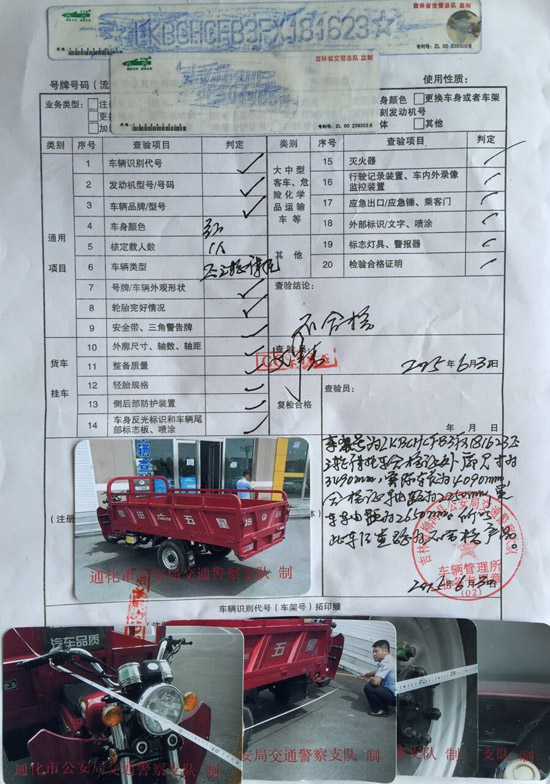 吉林省交警总队 监制
☆LKBGHCFB3FX181623☆
专利号: ZL 00 239302.8
吉林省交警总队 监制
专利号: ZL 00 239302.8
号牌号码
使用性质:
业务类型:
车身颜色 □更换车身或者车架
发动机号
□其他
类别 序号 查验项目 判定 类别 序号 查验项目 判定
通用项目
1 车辆识别代号
2 发动机型号/号码
3 车辆品牌/型号
4 车身颜色 红
5 核定载人数 1人
6 车辆类型 正三轮摩托
7 号牌/车辆外观形状
8 轮胎完好情况
9 安全带、三角警告牌
货车挂车
10 外廓尺寸、轴数、轴距
11 整备质量
12 轮胎规格
13 侧后部防护装置
14 车身反光标识和车辆尾部标志板、喷涂
大中型客车、危险化学品运输车等
15 灭火器
16 行驶记录装置、车内外录像监控装置
17 应急出口/应急锤、乘客门
18 外部标识/文字、喷涂
其他
19 标志灯具、警报器
20 检验合格证明
查验结论:
不合格
查验员:
2015年6月30日
复检合格
查验员:
年 月 日
车架号为LKBGHCFB3FX181623正
三轮摩托车合格证外廓尺寸为
3490mm,实际长为4090mm
合格证轴距为2250mm,实
际轴距为2650mm。
此车已查验为不合格产品。
车辆管理所
(02)
2015年6月30日
五星
通化市公安局交通警察支队 制
车辆识别代号(车架号)拓印膜
汽车品质
通化市公安局交通警察支队 制
五星
安局交通警察支队 制
警察支队 制